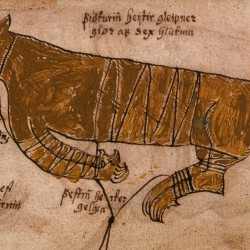 fiöturinn heitir gleipner
giör af sex hlutum
festinn heiter
gelgia